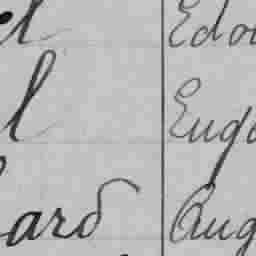 el Edou
l Euge
ard Aug